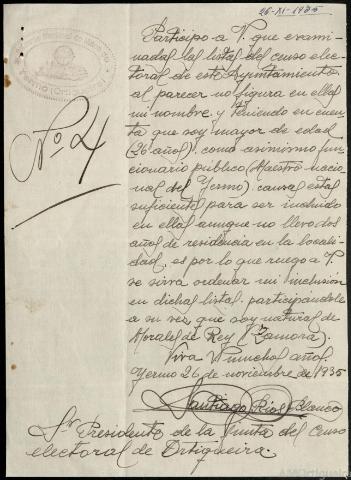 26-XI-1935
Nº 4
Participo a V. que exami-
nadas las listas del censo elec-
toral de este Ayuntamiento
al parecer no figura en ellas
mi nombre. y teniendo en cuen-
ta que soy mayor de edad
(26 años), como asimismo fun-
cionario público (Maestro nacio-
nal del Yermo) causas estas
suficientes para ser incluido
en ellas aunque no llevo dos
años de residencia en la locali-
dad, es por lo que ruego a V.
se sirva ordenar mi inclusión
en dichas listas. participándole
a su vez, que soy natural de
Morales de Rey (Zamora).
Viva V. muchos años.
Yermo 26 de noviembre de 1935
Santiago Ríos Blanco
Sr Presidente de la Junta del Censo
electoral de Ortigueira.